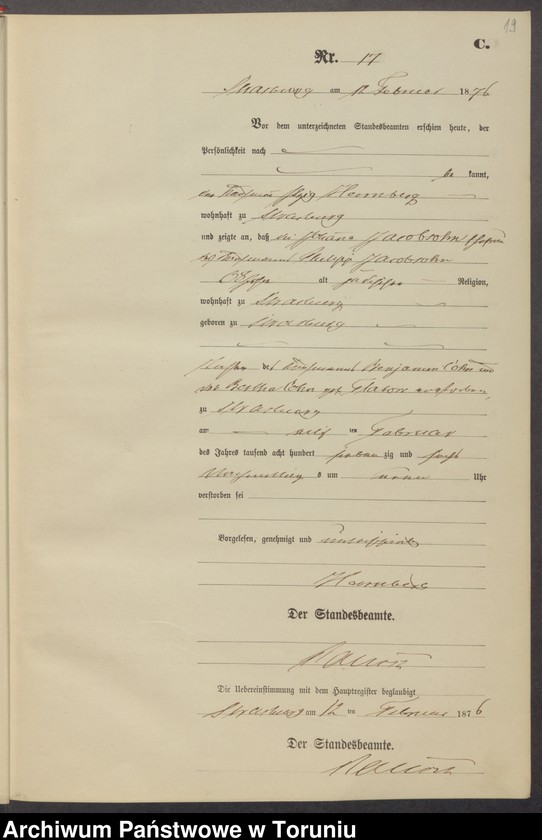 19
C.
Nr. 17
Strasburg am 12 Februar 1876
Vor dem unterzeichneten Standesbeamten erschien heute, der
Persönlichkeit nach
be kannt,
der Kaufmann Hernberg
wohnhaft zu Strasburg
und zeigte an, daß die Jacobsohn
des Kaufmann Philipp Jacobsohn
alt jüdischer Religion,
wohnhaft zu Strasburg
geboren zu Strasburg
des Kaufmann Benjamin Cohn und
Bertha Cohn geb. Flatow
zu Strasburg
am elf ten Februar
des Jahres tausend acht hundert sieben zig und sechs
Nachmittag s um Uhr
verstorben sei
Vorgelesen, genehmigt und unterschrieben
Hernberg
Der Standesbeamte.
Die Uebereinstimmung mit dem Hauptregister beglaubigt
Strasburg am 12 ten Februar 1876
Der Standesbeamte.
Archiwum Państwowe w Toruniu